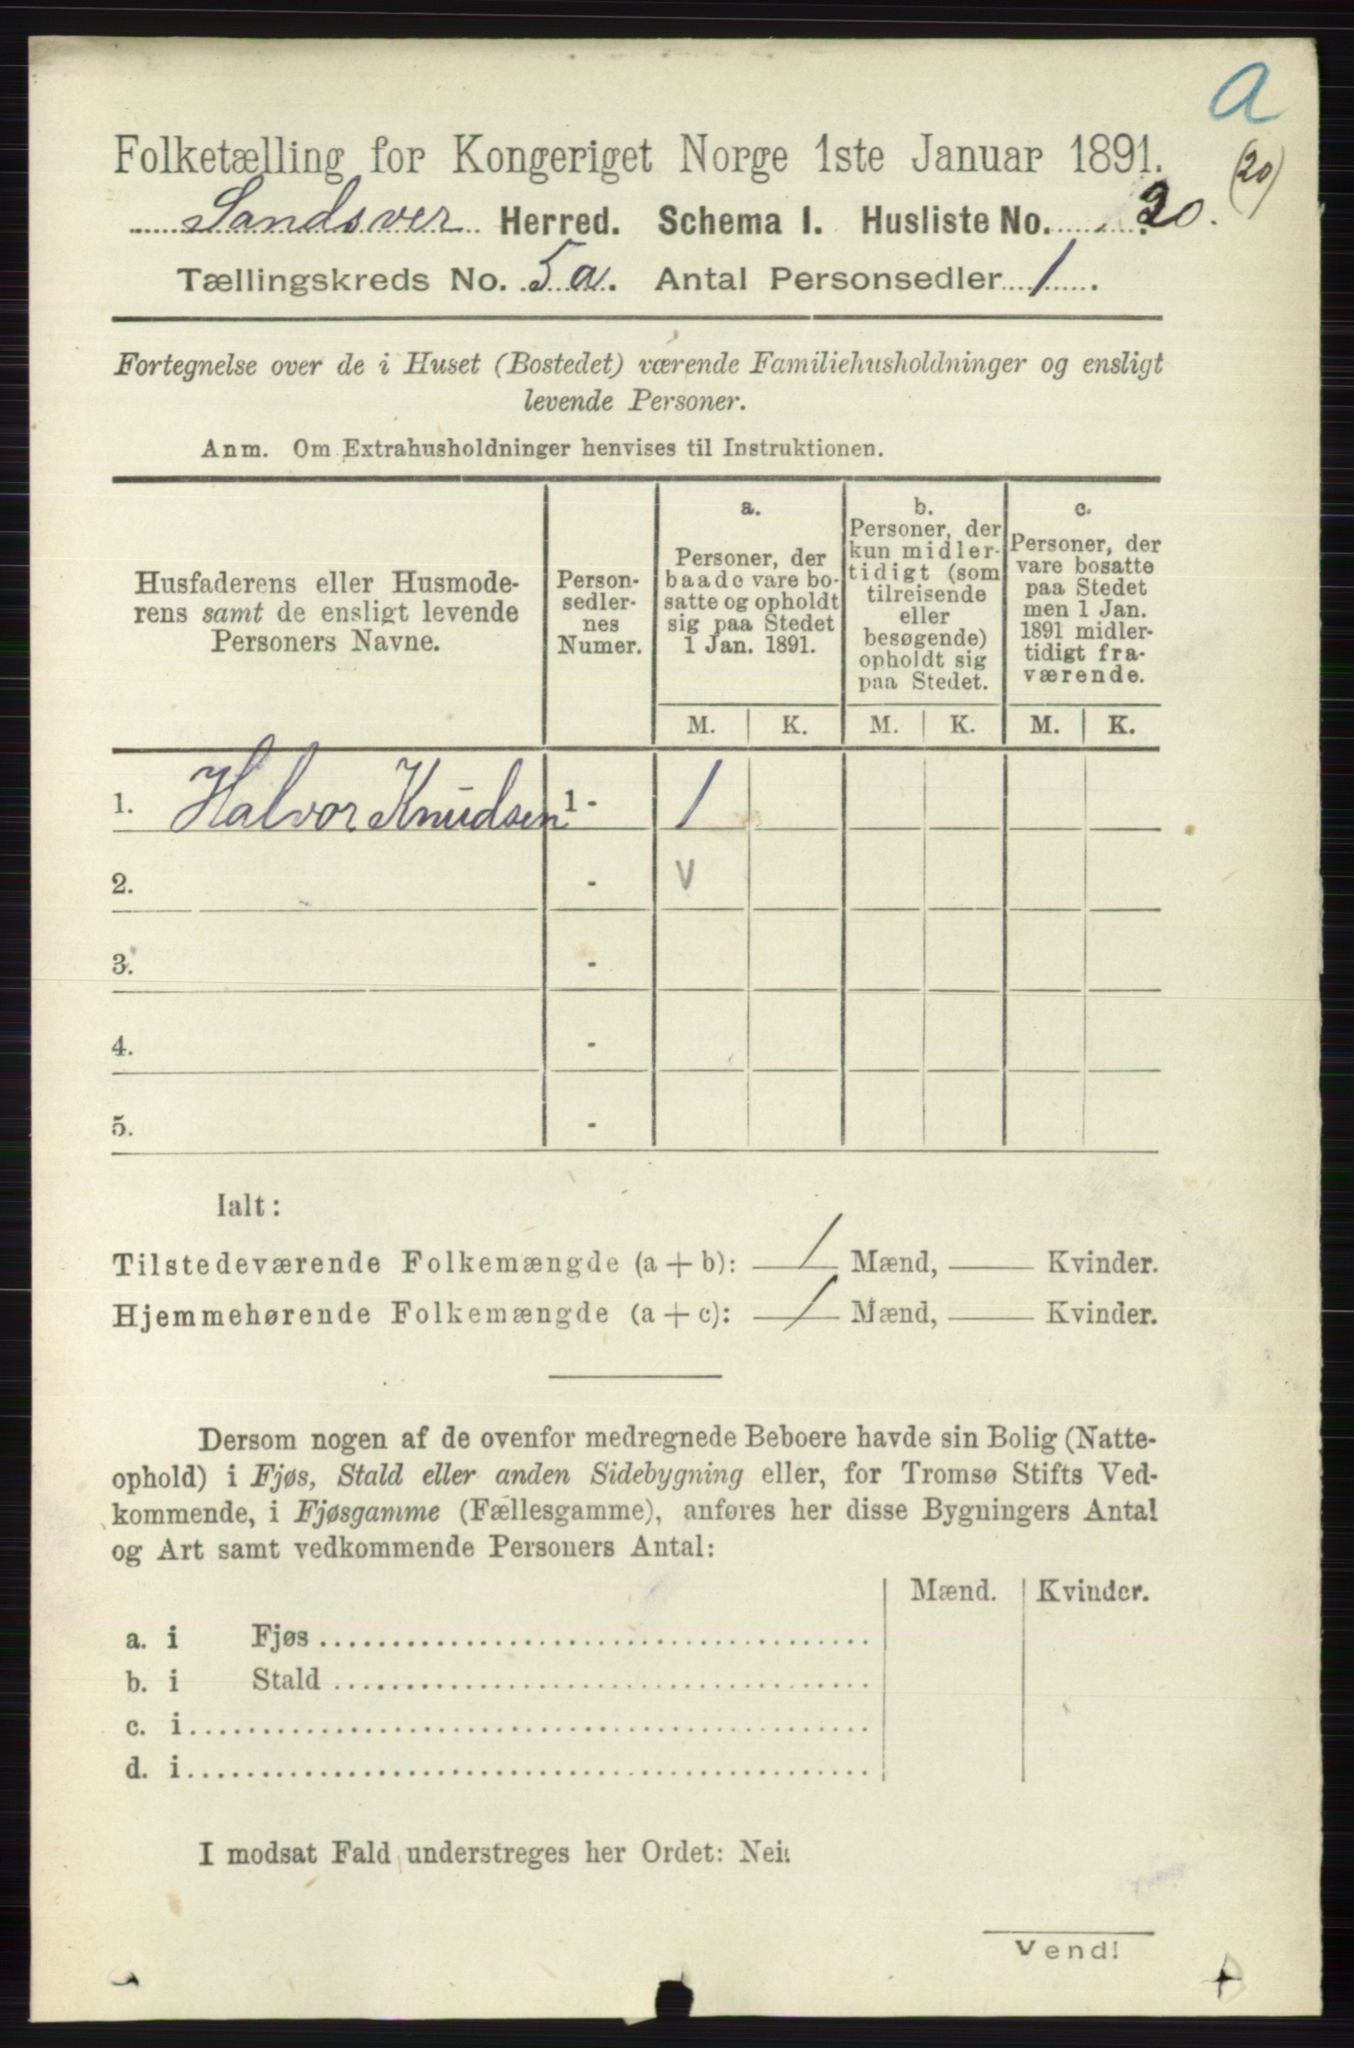 a
Folketælling for Kongeriget Norge 1ste Januar 1891.
(20)
Sandsver Herred. Schema I. Husliste No. 20.
Tællingskreds No. 5a. Antal Personsedler 1.
Fortegnelse over de i Huset (Bostedet) værende Familiehusholdninger og ensligt
levende Personer.
Anm. Om Extrahusholdninger henvises til Instruktionen.
Husfaderens eller Husmode-
rens samt de ensligt levende
Personers Navne.
Person-
sedler-
nes
Numer.
a.
Personer, der
baade vare bo-
satte og opholdt
sig paa Stedet
1 Jan. 1891.
b.
Personer, der
kun midler-
tidigt (som
tilreisende
eller
besøgende)
opholdt sig
paa Stedet.
c.
Personer, der
vare bosatte
paa Stedet
men 1 Jan.
1891 midler-
tidigt fra-
værende.
M. K. M. K. M. K.
1. Halvor Knudsen 1 - 1
2. - v
3. -
4. -
5. -
Ialt:
Tilstedeværende Folkemængde (a + b): 1 Mænd, Kvinder.
Hjemmehørende Folkemængde (a + c): 1 Mænd, Kvinder.
Dersom nogen af de ovenfor medregnede Beboere havde sin Bolig (Natte-
ophold) i Fjøs, Stald eller anden Sidebygning eller, for Tromsø Stifts Ved-
kommende, i Fjøsgamme (Fællesgamme), anføres her disse Bygningers Antal
og Art samt vedkommende Personers Antal:
Mænd. Kvinder.
a. i Fjøs
b. i Stald
c. i
d. i
I modsat Fald understreges her Ordet: Nei.
Vend!